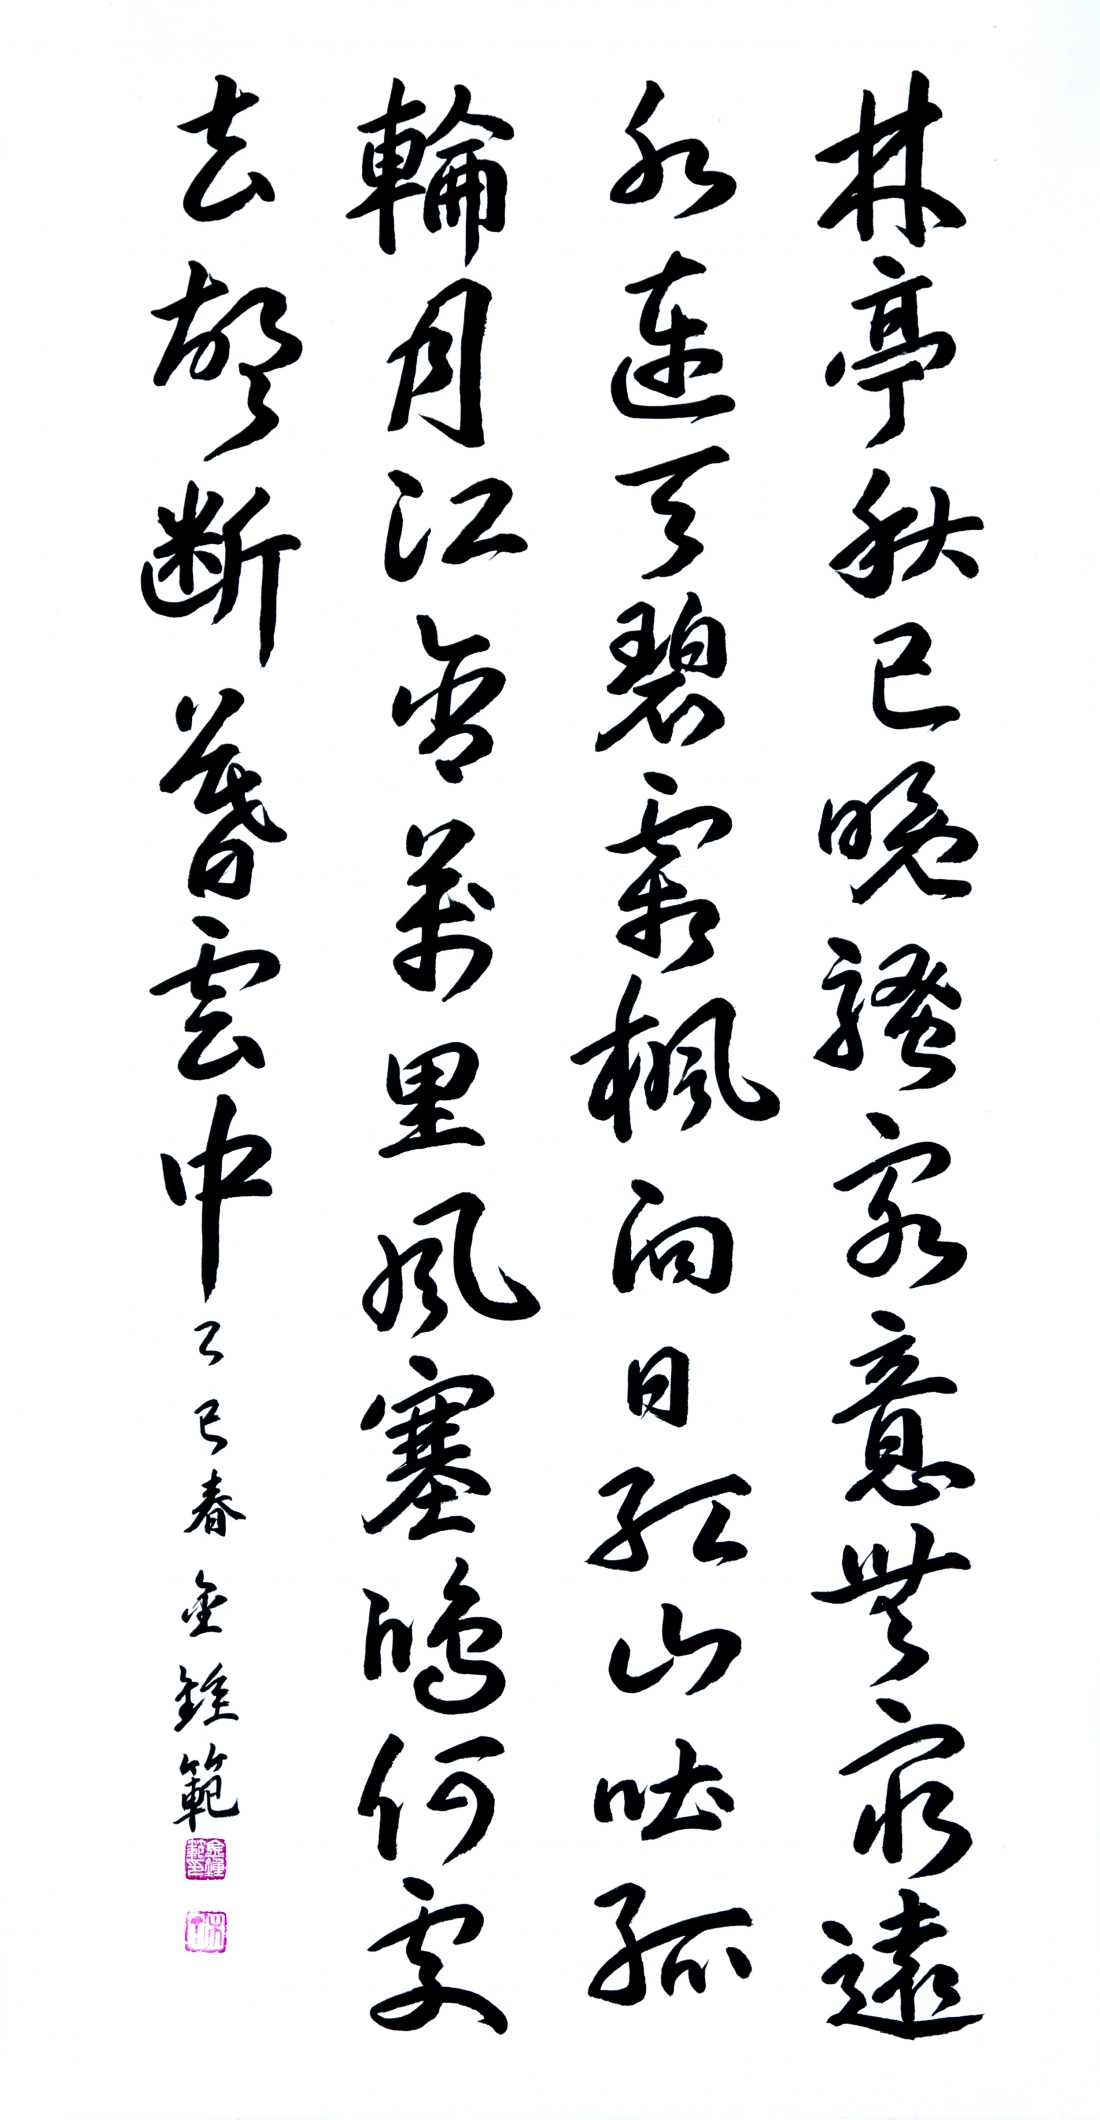 林亭秋已晚騷客意無窮遠
水連天碧霜楓向日紅山吐孤
輪月江含萬里風塞鴻何處
去聲斷暮雲中乙巳春金鍾範